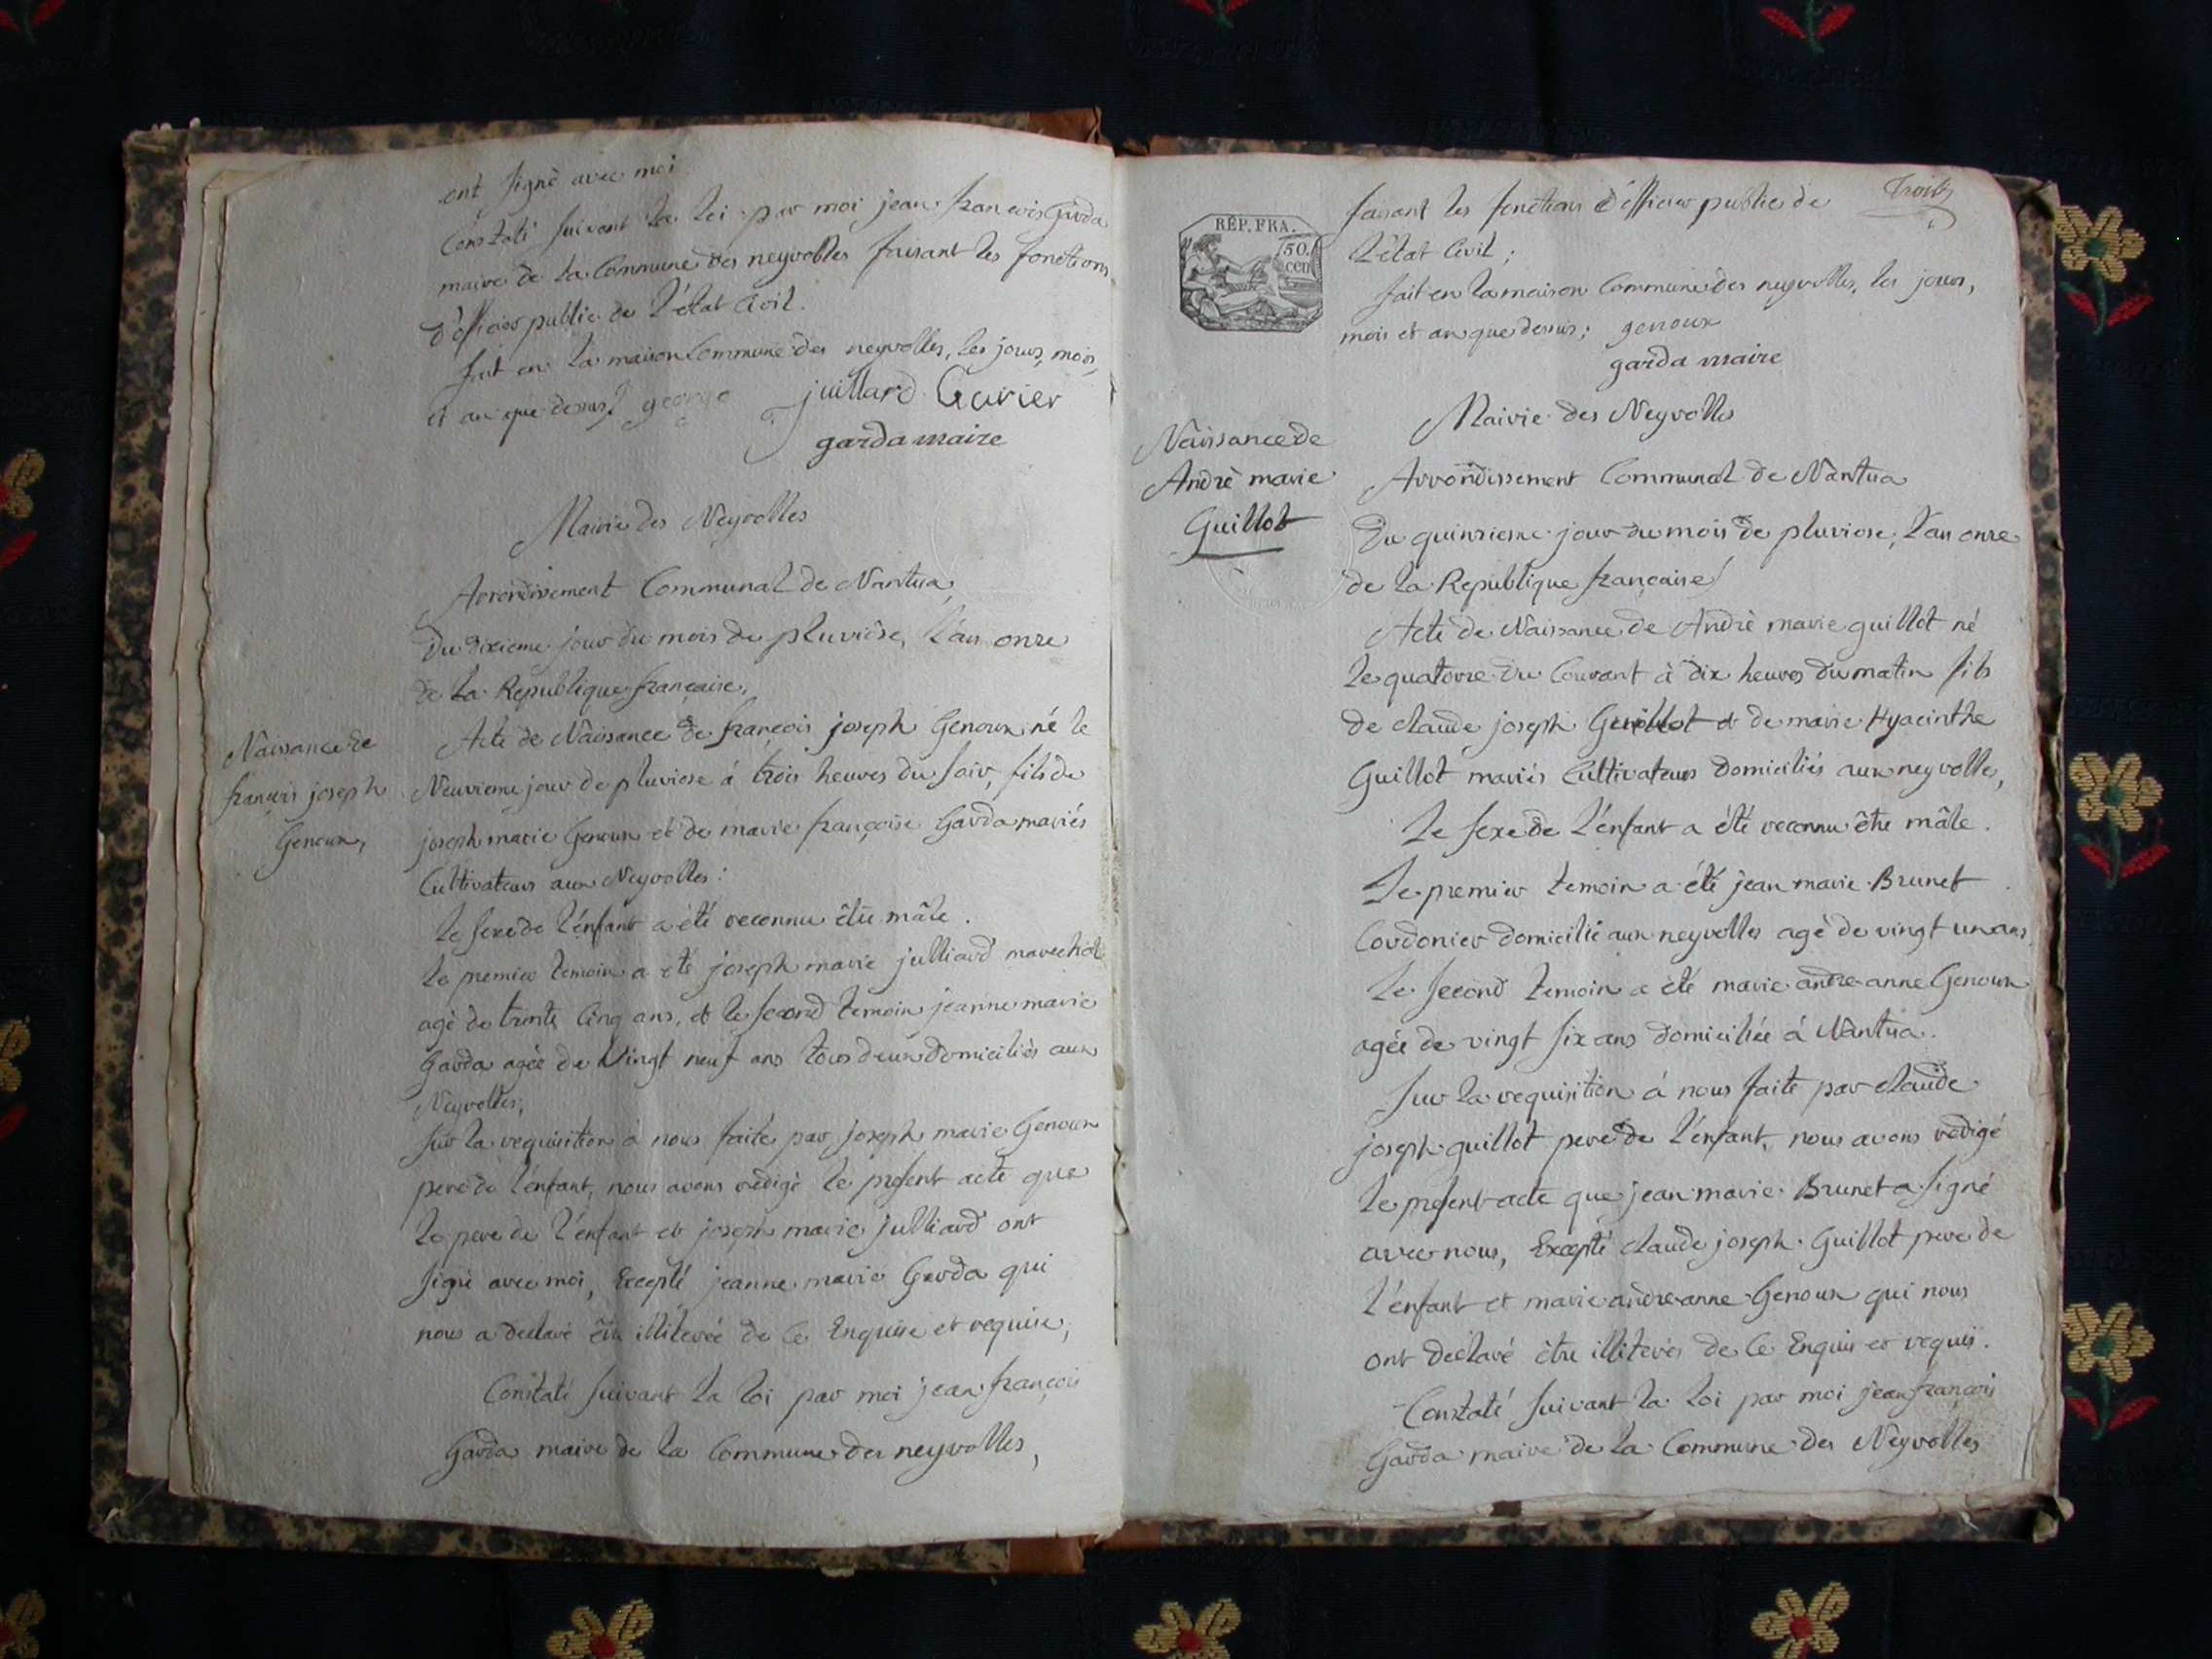 ont signé avec moi.
Constaté suivant la loi par moi jean francois Garda
maire de la Commune des neyrolles faisant les fonctions
d'officier public de l'état Civil.
fait en la maison Commune des neyrolles, les jours, mois,
et an que dessus, george juillard Cavrier
garda maire
Mairie des Neyrolles
Arrondissement Communal de Nantua,
Du dixieme jour du mois de pluviôse, l'an onze
de la Republique française,
Naissance de
francois joseph
Genoux,
Acte de Naissance de françois joseph Genoux né le
Neuvieme jour de pluviose á trois heures du soir, fils de
joseph marie Genoux et de marie françoise Garda mariés
Cultivateurs aux Neyrolles :
le sexe de l'énfant a été reconnu être mâle.
le premier temoin a été joseph marie julliard marechal
agé de trente Cinq ans, et le second temoin jeanne marie
Garda agée de Vingt neuf ans tous deux domiciliés aux
Neyrolles;
sur la requisition á nous faite par joseph marie Genoux
pere de l'énfant, nous avons redigé le present acte que
le pere de l'énfant et joseph marie julliard ont
signé avec moi, Excepté jeanne marie Garda qui
nous a declaré être illiterée de Ce Enquise et requise,
Constaté suivant la loi par moi jean françois
Garda maire de la Commune des neyrolles,
Troib
REP. FRA.
50.
cen
faisant les fonctions d'officier public de
l'état Civil;
fait en la maison Commune des neyrolles, les jours,
mois et an que dessus; genoux
garda maire
Mairie des Neyrolles
Naissance de
Andrè marie
Guillot
Arrondissement Communal de Nantua
Du quinzieme jour du mois de pluviose, l'an onze
de la Republique française
Acte de Naissance de Andrè marie guillot né
le quatorze du Courant à dix heures du matin fils
de claude joseph Guillot et de marie Hyacinthe
Guillot mariés Cultivateurs domiciliés aux neyrolles,
Le sexe de l'énfant a été reconnu être mâle.
Le premier temoin a été jean marie Brunet
Cordonier domicilié aux neyrolles agé de vingt un ans
Le second temoin a été marie andre anne Genoux
agée de vingt six ans domiciliée á Nantua.
Sur la requisition á nous faite par claude
joseph guillot pere de l'énfant, nous avons redigé
le present acte que jean marie Brunet a signé
avec nous, Excepté claude joseph Guillot pere de
l'énfant et marie andre anne Genoux qui nous
ont déclaré être illiterés de Ce Enquis et requis.
Constaté suivant la loi par moi jean françois
Garda maire de la Commune des Neyrolles